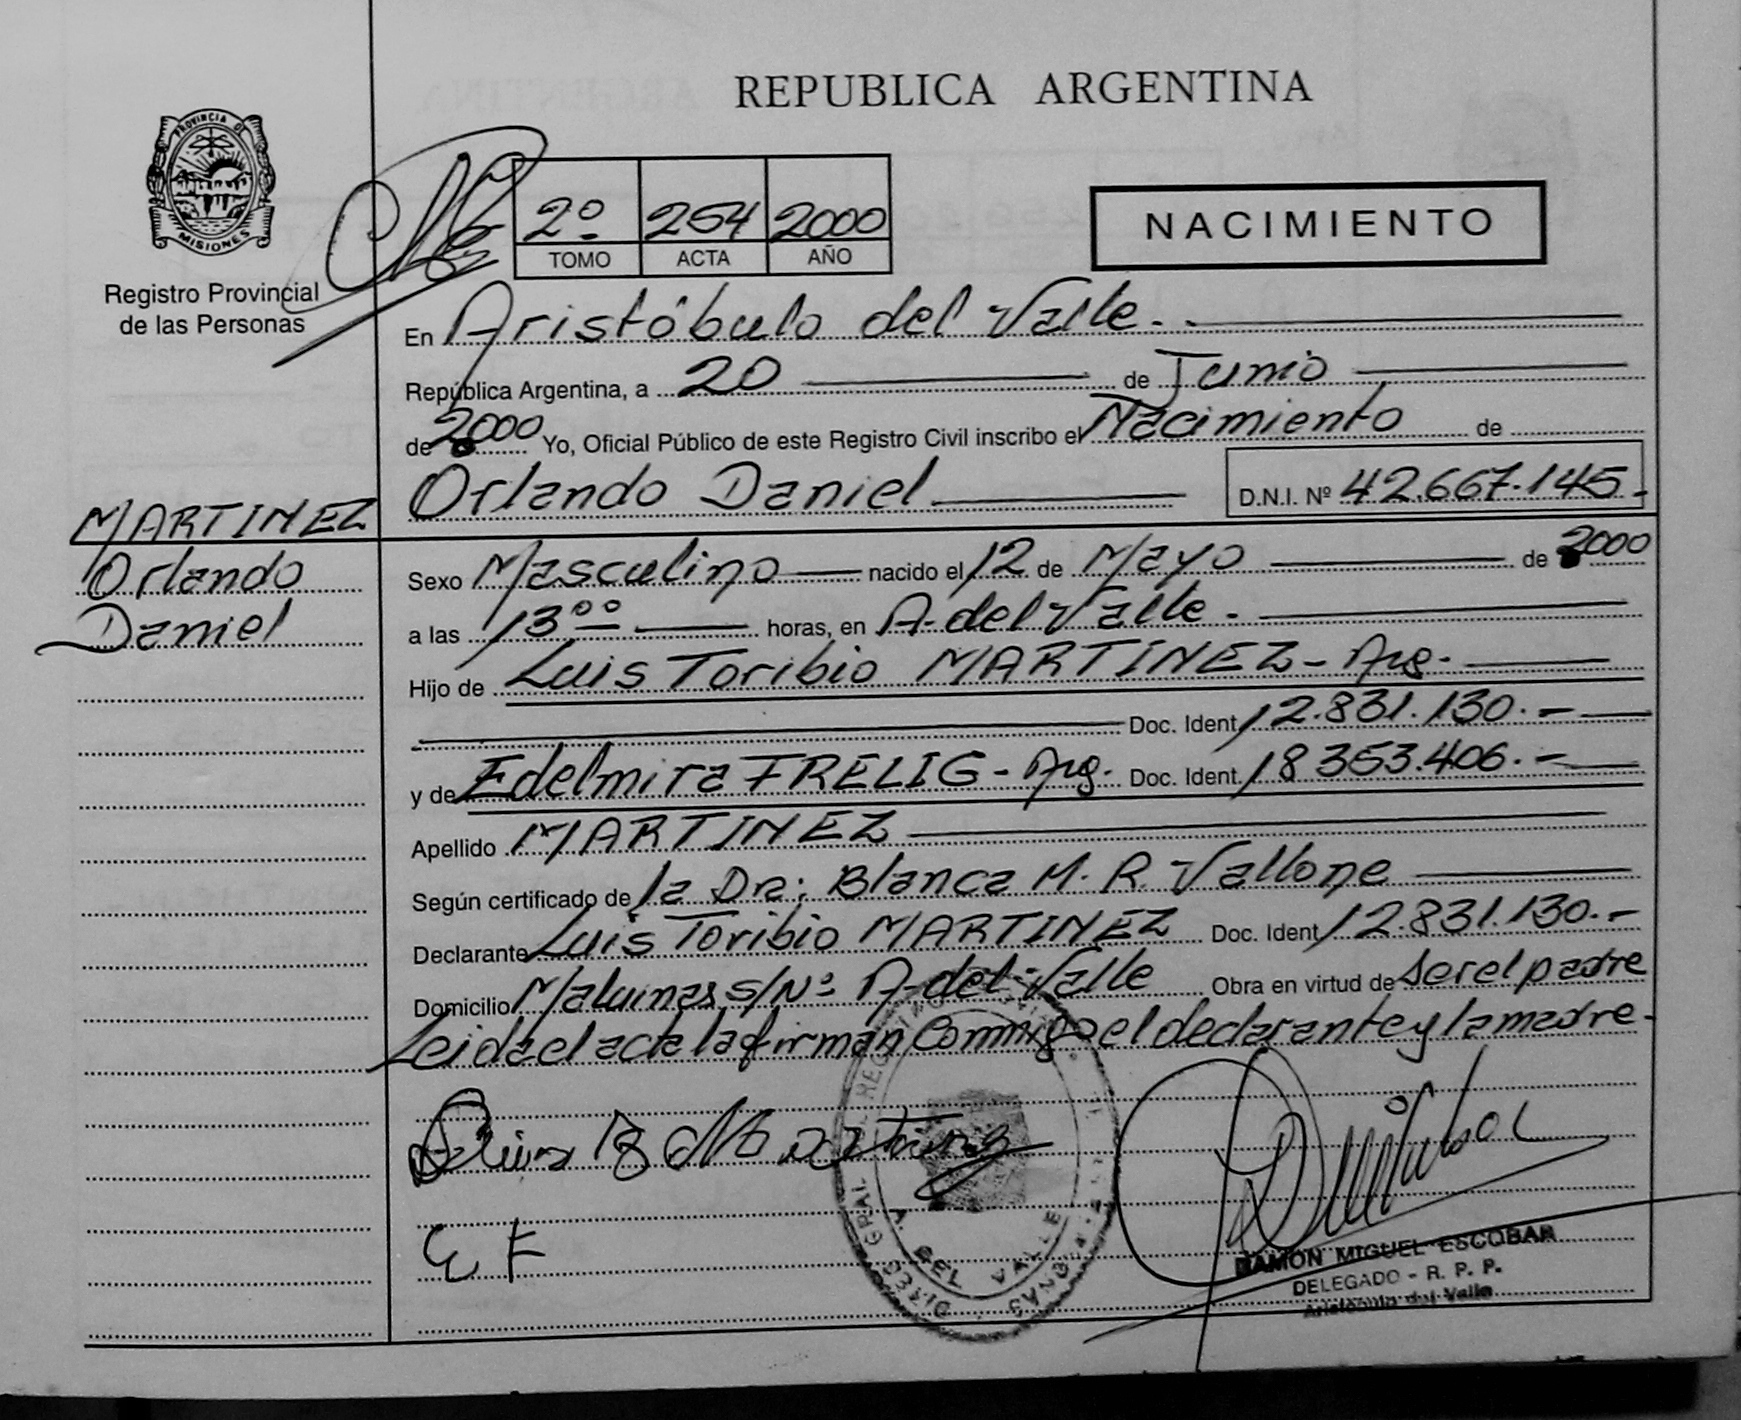 REPUBLICA ARGENTINA
PROVINCIA DE
MISIONES
Registro Provincial
de las Personas
2º 254 2000
TOMO ACTA AÑO
NACIMIENTO
En Aristóbulo del Valle.-
República Argentina, a 20 de Junio
de 2000 Yo, Oficial Público de este Registro Civil inscribo el Nacimiento de
Orlando Daniel D.N.I. Nº 42.667.145.-
MARTINEZ
Orlando
Daniel
Sexo Masculino nacido el 12 de Mayo de 2000
a las 13ºº horas, en A. del Valle.-
Hijo de Luis Toribio MARTINEZ - Arg.-
Doc. Ident. 12.831.130.-
y de Edelmira FRELIG - Arg. Doc. Ident. 18353.406.-
Apellido MARTINEZ
Según certificado de la Dra: Blanca M. R. Vallone
Declarante Luis Toribio MARTINEZ Doc. Ident. 12.831.130.-
Domicilio Malvinas s/Nº A. del Valle Obra en virtud de ser el padre
Leida el acta la firman Conmigo el declarante y la madre.-
E F
A. DEL VALLE
RAMON MIGUEL ESCOBAR
DELEGADO - R. P. P.
Aristóbulo del Valle